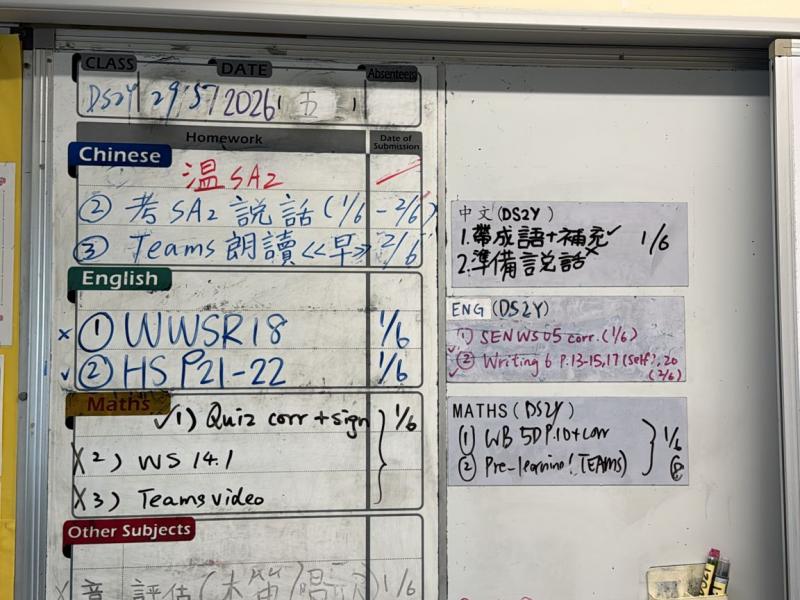 CLASS DATE Absentees
DS2Y 29/5/2026 五
Homework Date of Submission
Chinese
溫SA2
② 考SA2說話(1/6-2/6)
③ Teams朗讀<<早>> 2/6
English
x ① WWSR18 1/6
✓ ② HS P21-22 1/6
Maths
✓1) Quiz corr + sign } 1/6
X 2) WS 14.1
X 3) Teams video
Other Subjects
X 音 評估(木笛/唱 1/6
中文(DS2Y)
1.帶成語+補充✓ 1/6
2.準備說話x
ENG (DS2Y)
① SEN WS 05 corr. (1/6)
② Writing 6 P.13-15,17 (self), 20
(2/6)
MATHS (DS2Y)
① WB 5D P.10+corr } 1/6
② Pre-learning (TEAMS)